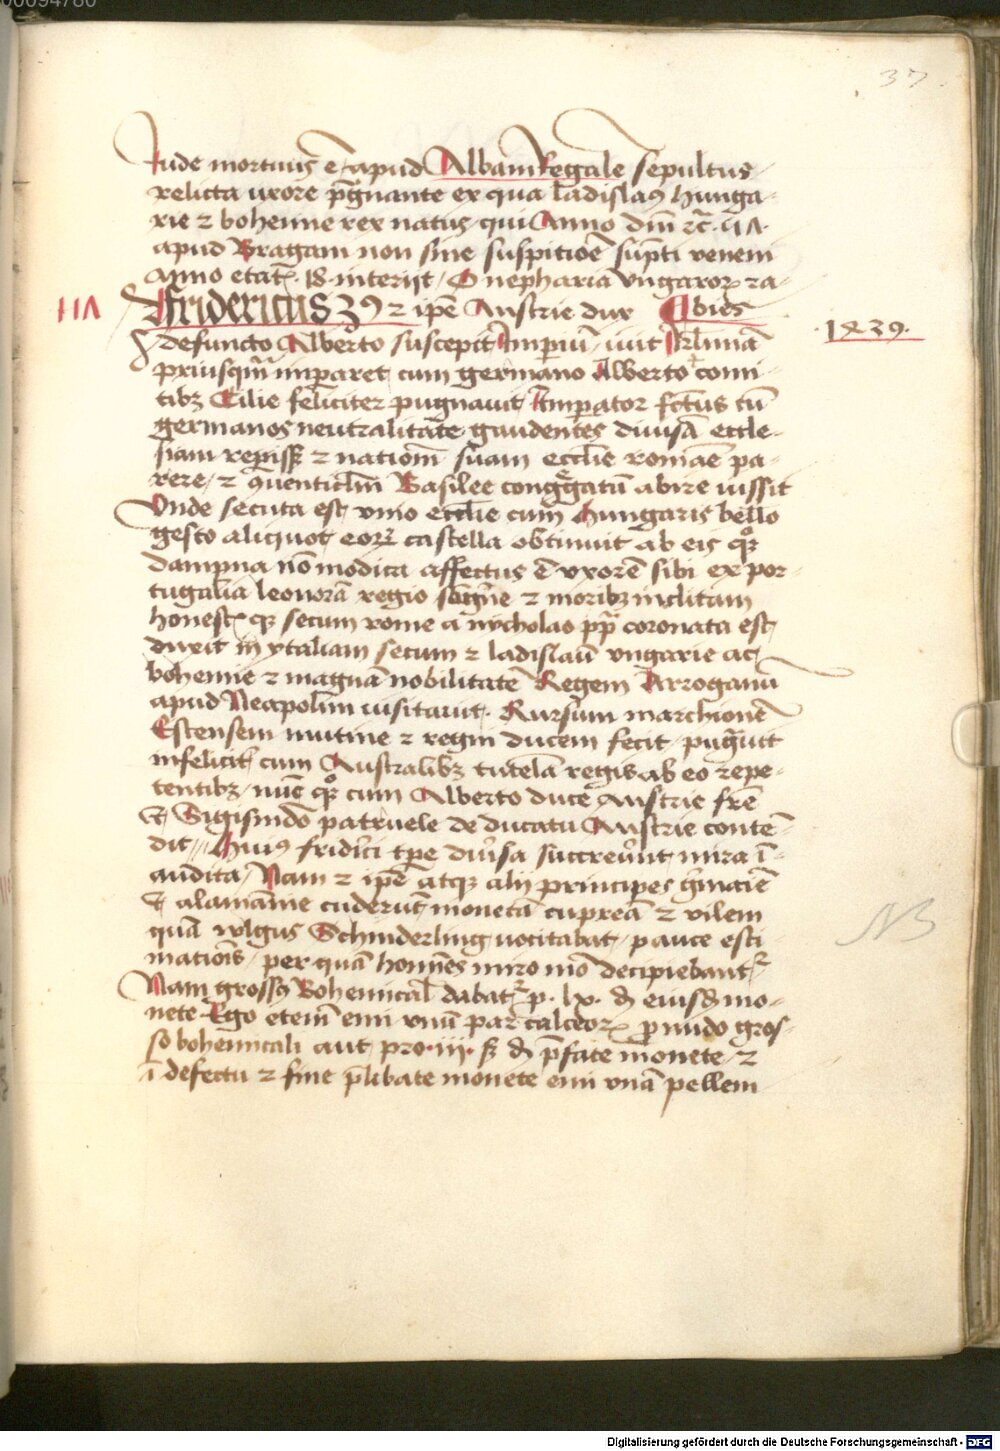 00094780
37
Inde mortuus ē apud Albam Regalē sepultus
relicta uxore p̄gnante ex qua ladislaꝰ hunga-
rie ⁊ bohemie rex natus qui Anno dm̄ ⁊c̄
apud Bragam non sine suspitiōe sūpti veneni
Anno etatꝭ 18 interijt O nepharia vngaroꝝ ra-
Fridericus 3ꝰ ⁊ ipē Austrie dux bies
1439
defuncto Alberto suscepit Imperiū
priusqm̄ imꝑaret cum germano Alberto comi-
tibꝫ Cilie feliciter pugnauit Imperator fctūs tū
germanos neutralitate gaudentes diuisā eccle-
siam ⁊ nationē suam ecclīe romāe pa-
rere ⁊ Basilee congregatū abire iussit
Vnde secuta est vnio ecclīe cum Hungaris bello
gesto aliquot eoꝝ castella obtinuit ab eis qꝫ
dampna nō modica affectus ē vxorē sibi ex por-
tugalia leonorā regio sāgne ⁊ moribꝫ inclitam
honestꝭ qꝫ secum rome a nycholao pp̄ coronata est
duxit in ytaliam secum ⁊ ladislaū vngarie ac
bohemie ⁊ magnā nobilitatē Regem Arroganū
apud Neapolim uisitauit Rursum marchionē
Estensem mutine ⁊ regin ducem fecit pugͣuit
infelicit̄ cum Australibꝫ tutelā regis ab eo repe-
tentibꝫ nūc qꝫ cum Alberto duce Austrie frē
⁊ Sigismūdo patruele de ducatu Austrie contē-
dit Huiꝰ friderici tꝑe diūsa succreuerūt mira ī-
audita Nam ⁊ ipē atqꝫ alij principes
⁊ alamānie cuderūt monetā cupreā ⁊ vilem
quā wlgus Schinderling uocitabat pauce esti-
mationis per quā homīes miro mō decipiebantᷣ
Nam grossꝰ Bohemical̄ dabatᷣ p. lx. ₰ eiusdē mo-
nete Ego etenī emi vnū par calceoꝝ pro nudo gros-
so bohemicali aut pro iii ₰ p̄fate monete ⁊
ī defectu ⁊ fine p̄libate monete emi vnā pellem
NB
Digitalisierung gefördert durch die Deutsche Forschungsgemeinschaft - DFG